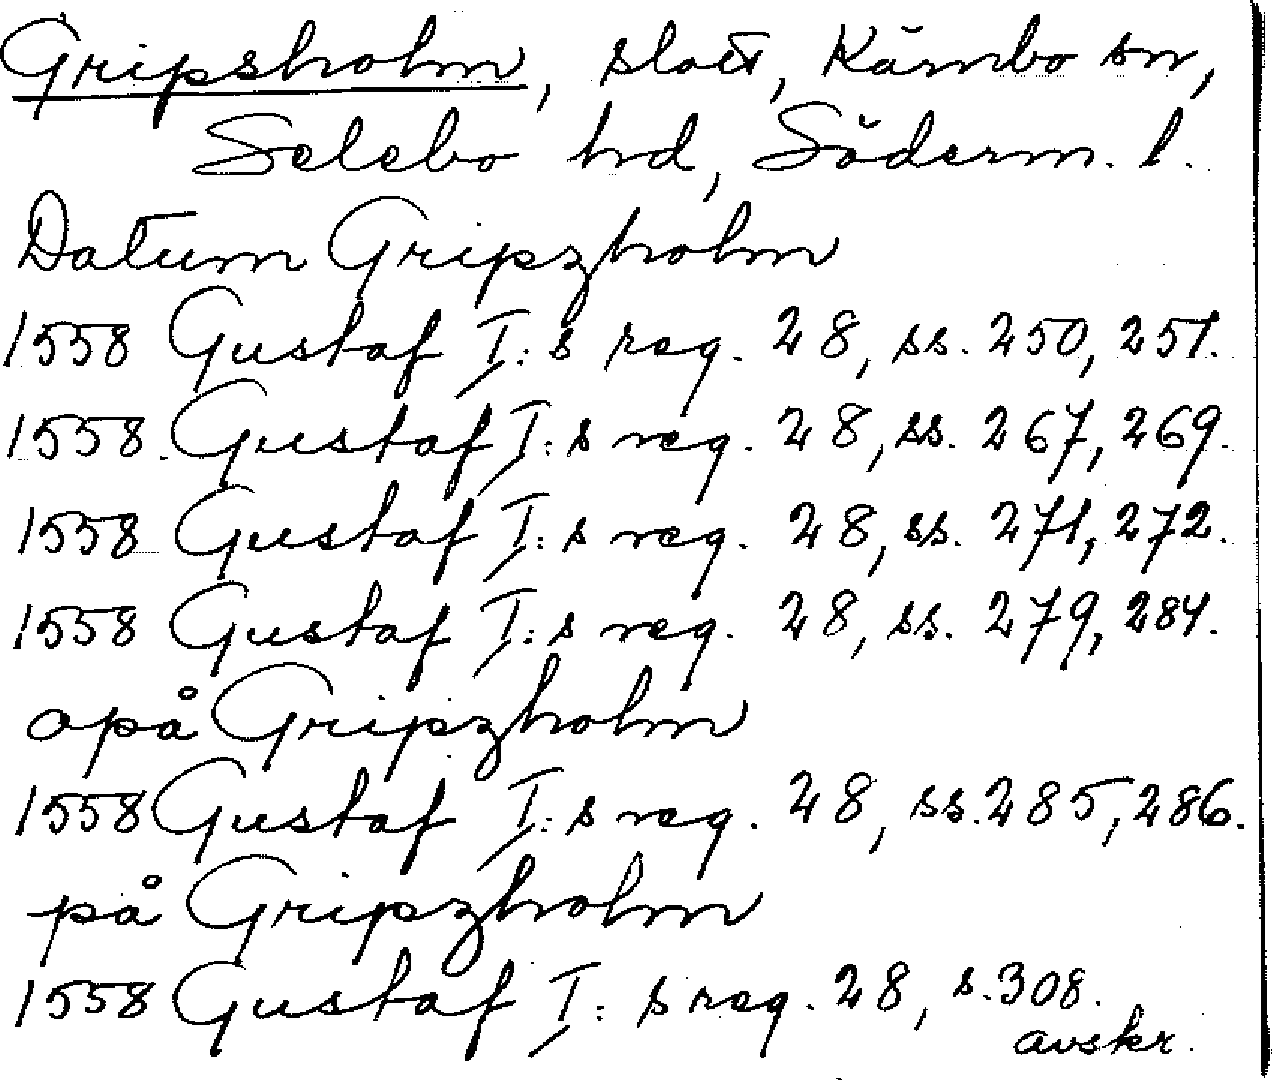 Gripsholm, slott, Kärnbo sn,
Selebo hd, Söderm. l.
Datum Gripzholm
1558 Gustaf I:s reg. 28, ss. 250, 251.
1558 Gustaf I:s reg. 28, ss. 267, 269.
1558 Gustaf I:s reg. 28, ss. 271, 272.
1558 Gustaf I:s reg. 28, ss. 279, 281.
opå Gripzholm
1558 Gustaf I:s reg. 28, ss. 285, 286.
på Gripzholm
1558 Gustaf I:s reg. 28, s. 308.
avskr.